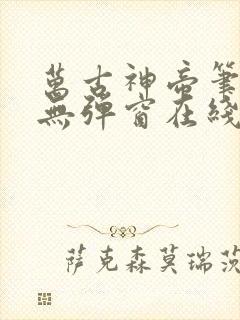 萬古神帝筆
無彈窗在綫
萨克森莫瑞茨